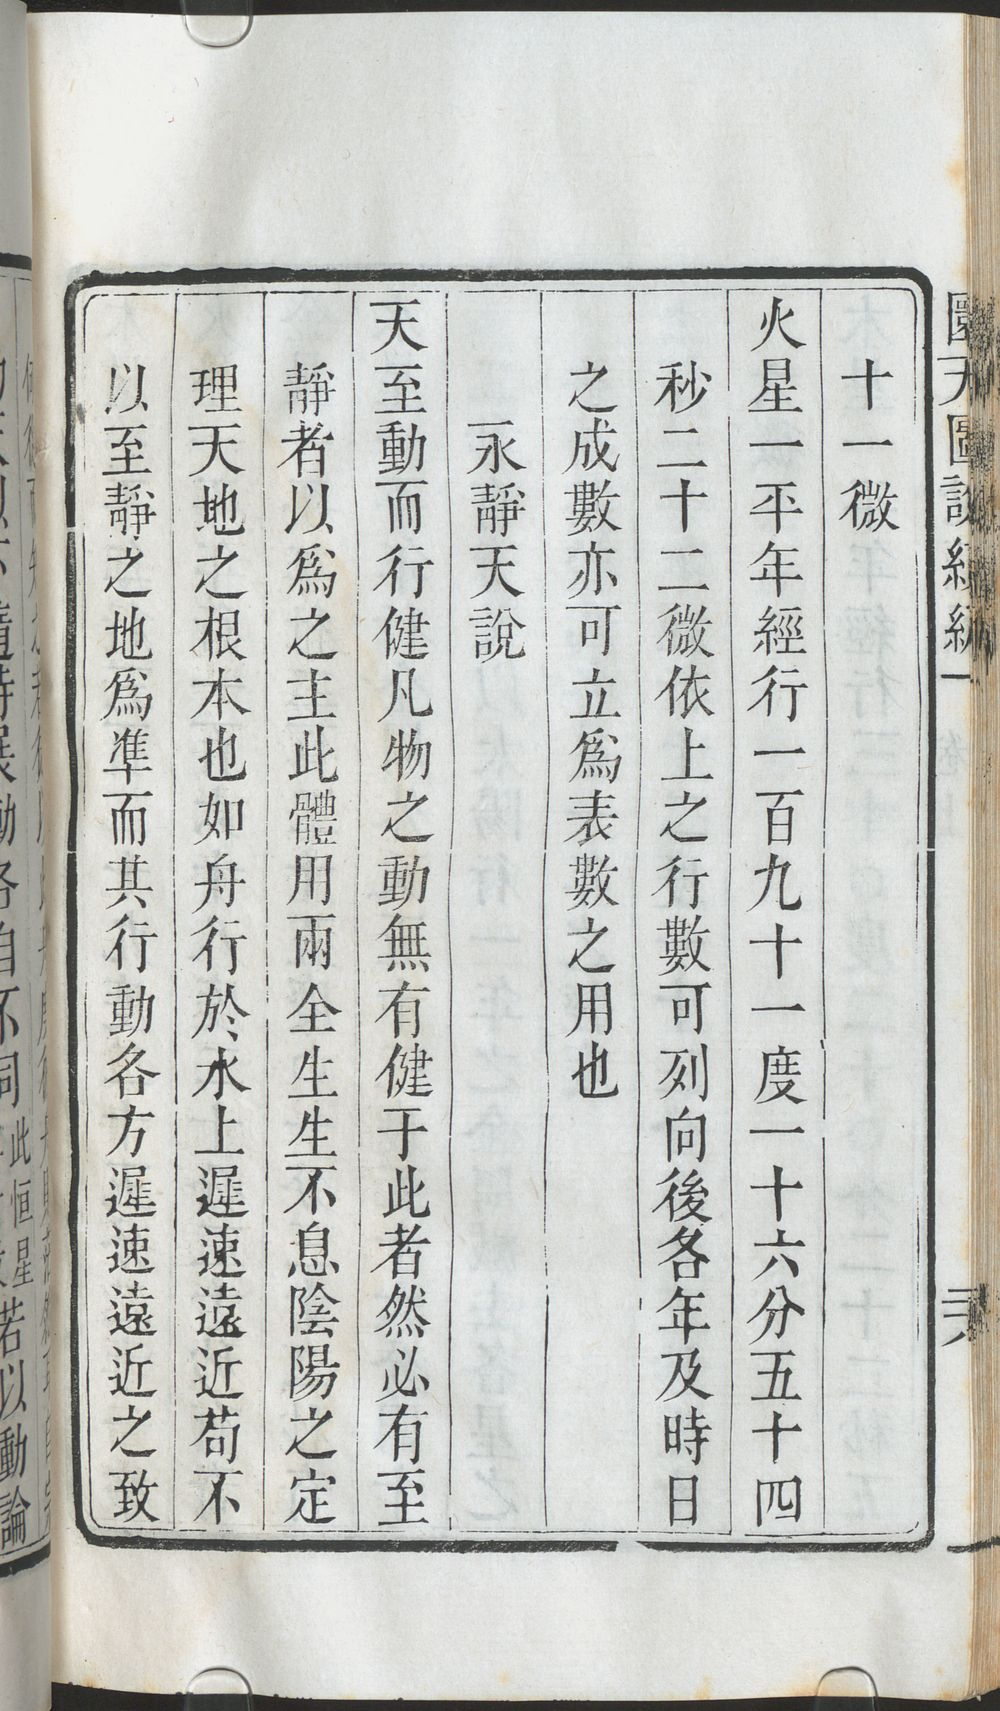 圜天圖說續編一
十一微
火星一平年經行一百九十一度一十六分五十四
秒二十二微依上之行數可列向後各年及時日
之成數亦可立爲表數之用也
永靜天說
天至動而行健凡物之動無有健于此者然必有至
靜者以爲之主此體用兩全生生不息陰陽之定
理天地之根本也如舟行於水上遲速遠近苟不
以至靜之地爲準而其行動各方遲速遠近之致
此恒星
若以動論